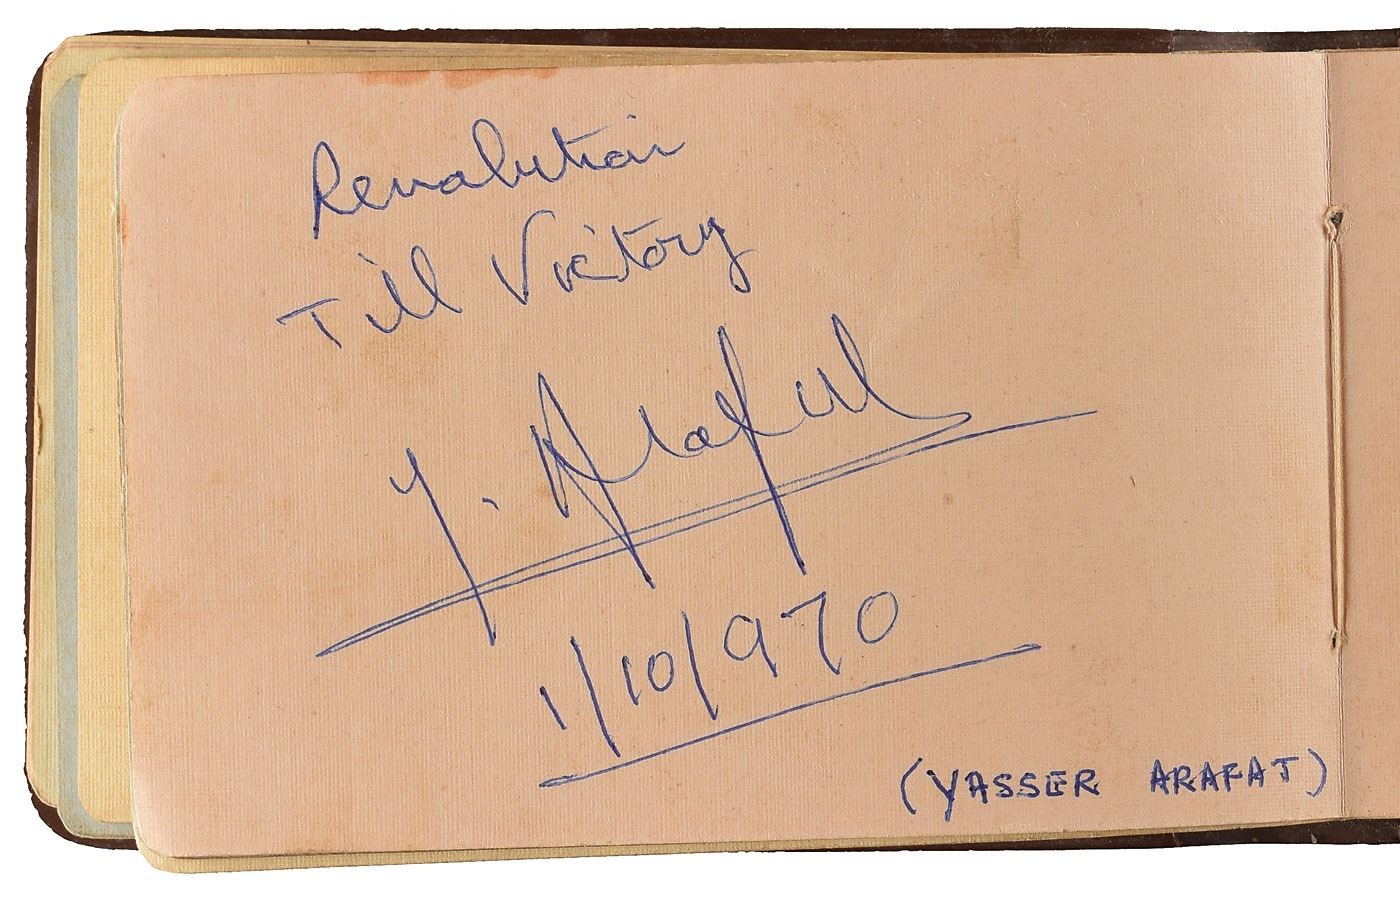 Revolution
Till Victory
Y. Arafat
1/10/970
(YASSER ARAFAT)